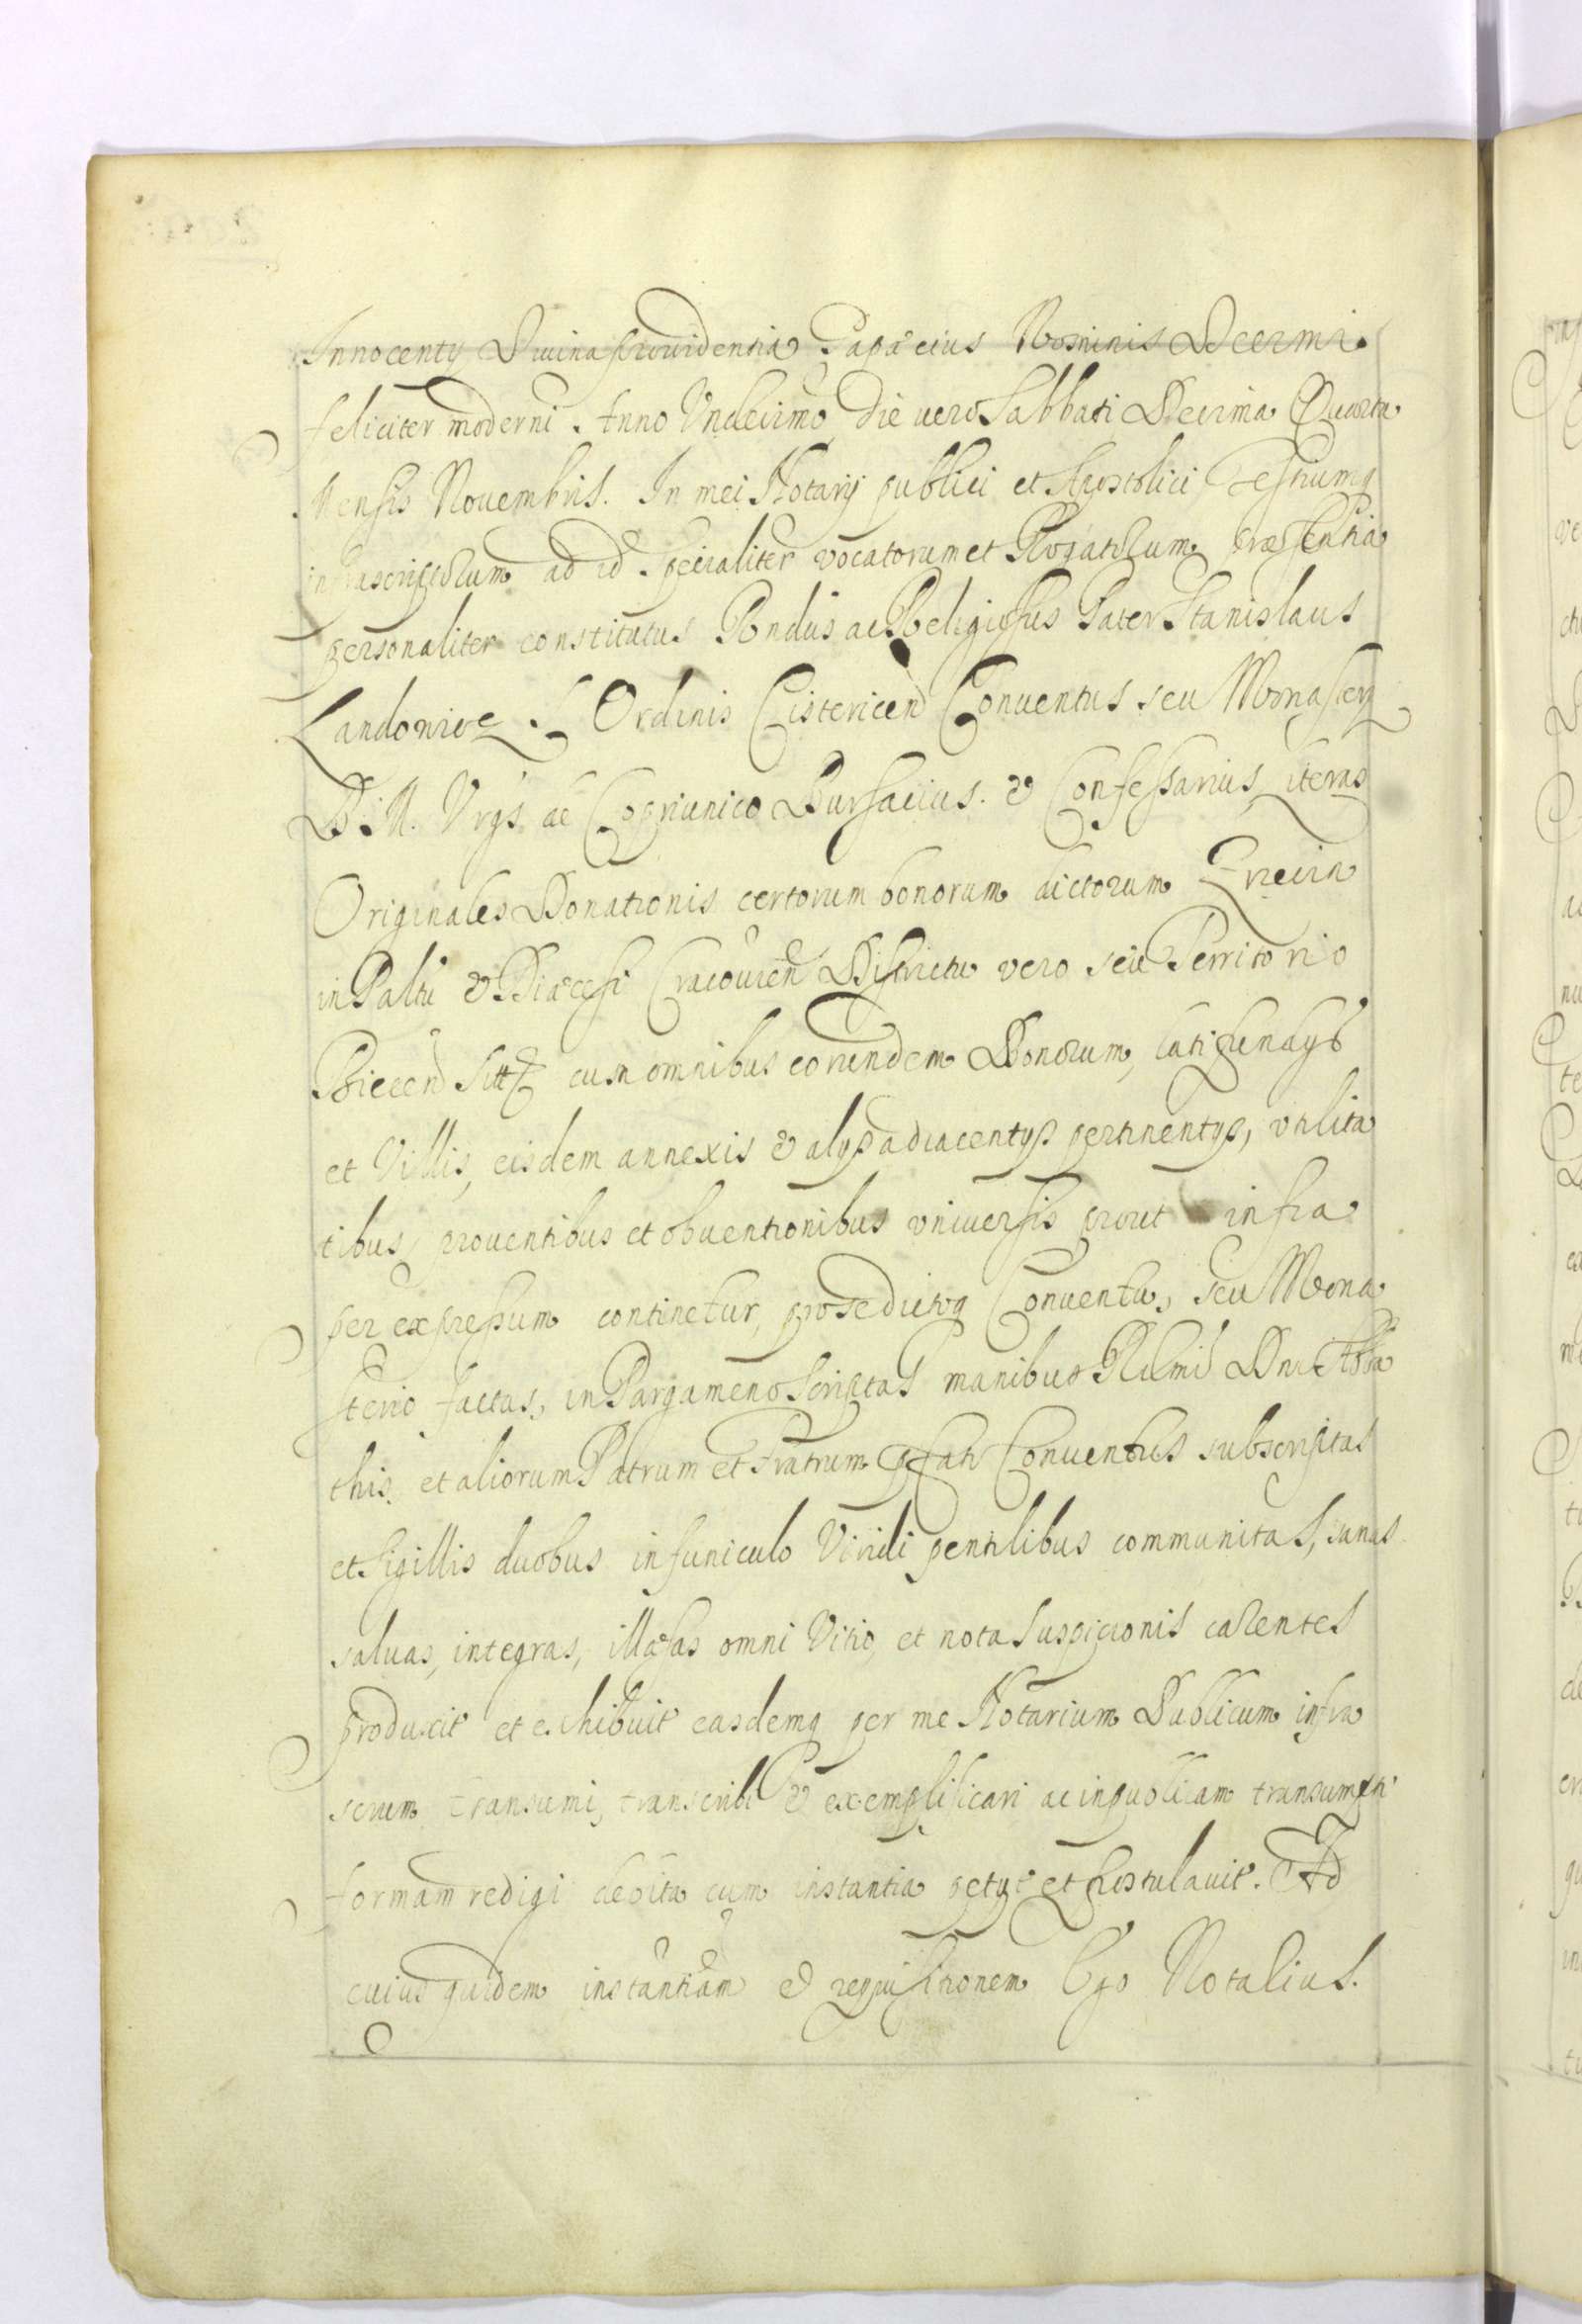 Innocentij Diuina prouidentia Papæ eius Nominis Decimi
feliciter moderni. Anno Vndecimo, Die uero Sabbati Decima Quarta
Mensis Nouembris. In mei Notarij publici et Apostolici Testiumq
infrascriptorum ad id specialiter vocatorum et Rogatorum præsentia
personaliter constitutus Rndus ac Religiosus Pater Stanislaus
Ordinis Cistericen Conuentus seu Monasterij
B. M. Vrgs. de Copriunico Bursarius. & Confessarius, literas
Originales Donationis certorum bonorum dictorum
in Paltu & Diæcesi Cracouien Districtu vero seu Territorio
Biecen sitt cum omnibus eorundem Bonorum,
et Villis, eisdem annexis & alijs adiacentijs pertinentijs, vtilita
tibus, prouentibus et obuentionibus vniuersis prout infra
per expressum continetur, pro se dictoq Conuentu, seu Mona
sterio factas, in Pargameno scriptas manibus Rdmi Dni Abba
this, et aliorum Patrum et Fratrum pfati Conuentus subscriptas
et Sigillis duobus in funiculo Viridi pensilibus communitas, sanas
saluas, integras, illæsas omni Vitio, et nota suspicionis carentes
produxit et exhibuit easdemq per me Notarium Publicum infra
scrium transumi, transcribi & exemplificari ac in publicam transumpti
formam redigi debita cum instantia petijt et postulauit. Ad
cuius quidem instantiam & requisitionem Ego Notarius.